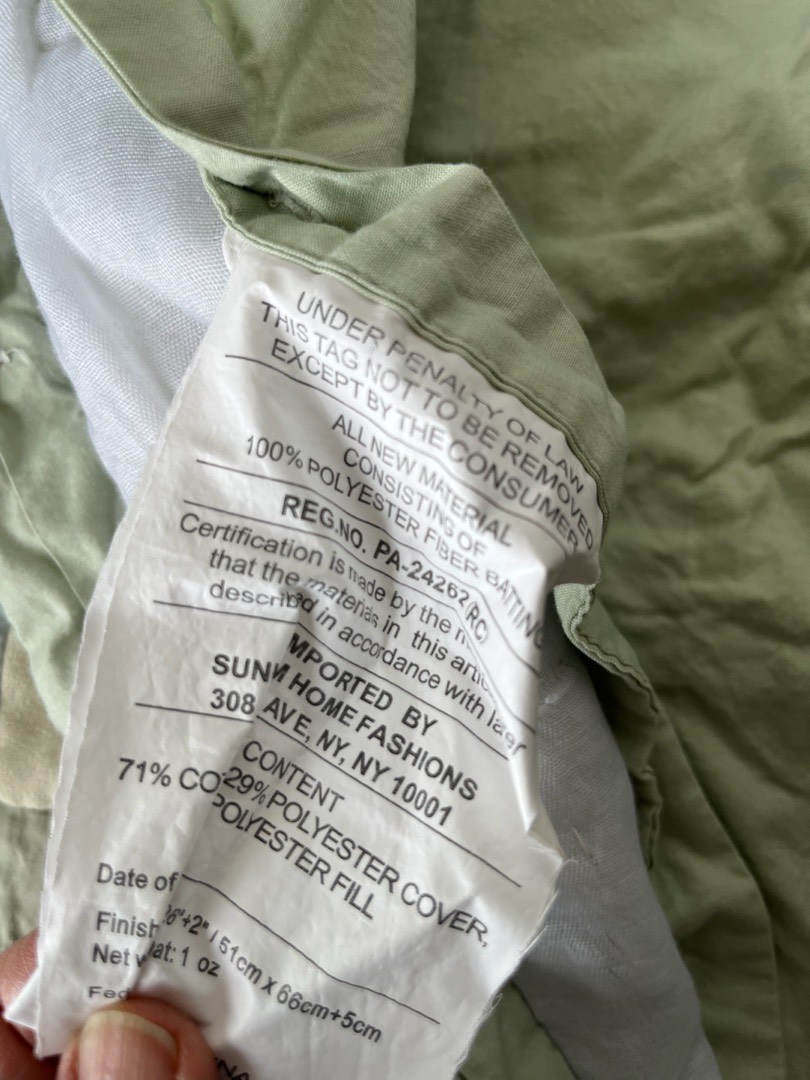 UNDER PENALTY OF LAW
THIS TAG NOT TO BE REMOVED
EXCEPT BY THE CONSUMER
ALL NEW MATERIAL
CONSISTING OF
100% POLYESTER FIBER BATTING
REG.NO. PA-24262(RC)
Certification is made by the
that the materials in this
described in accordance with
MPORTED BY
HOME FASHIONS
308 AVE, NY, NY 10001
CONTENT
71% CO 29% POLYESTER COVER,
POLYESTER FILL
Date of
Finish 26"+2" / 51cm x 66cm+5cm
Net at: 1 oz